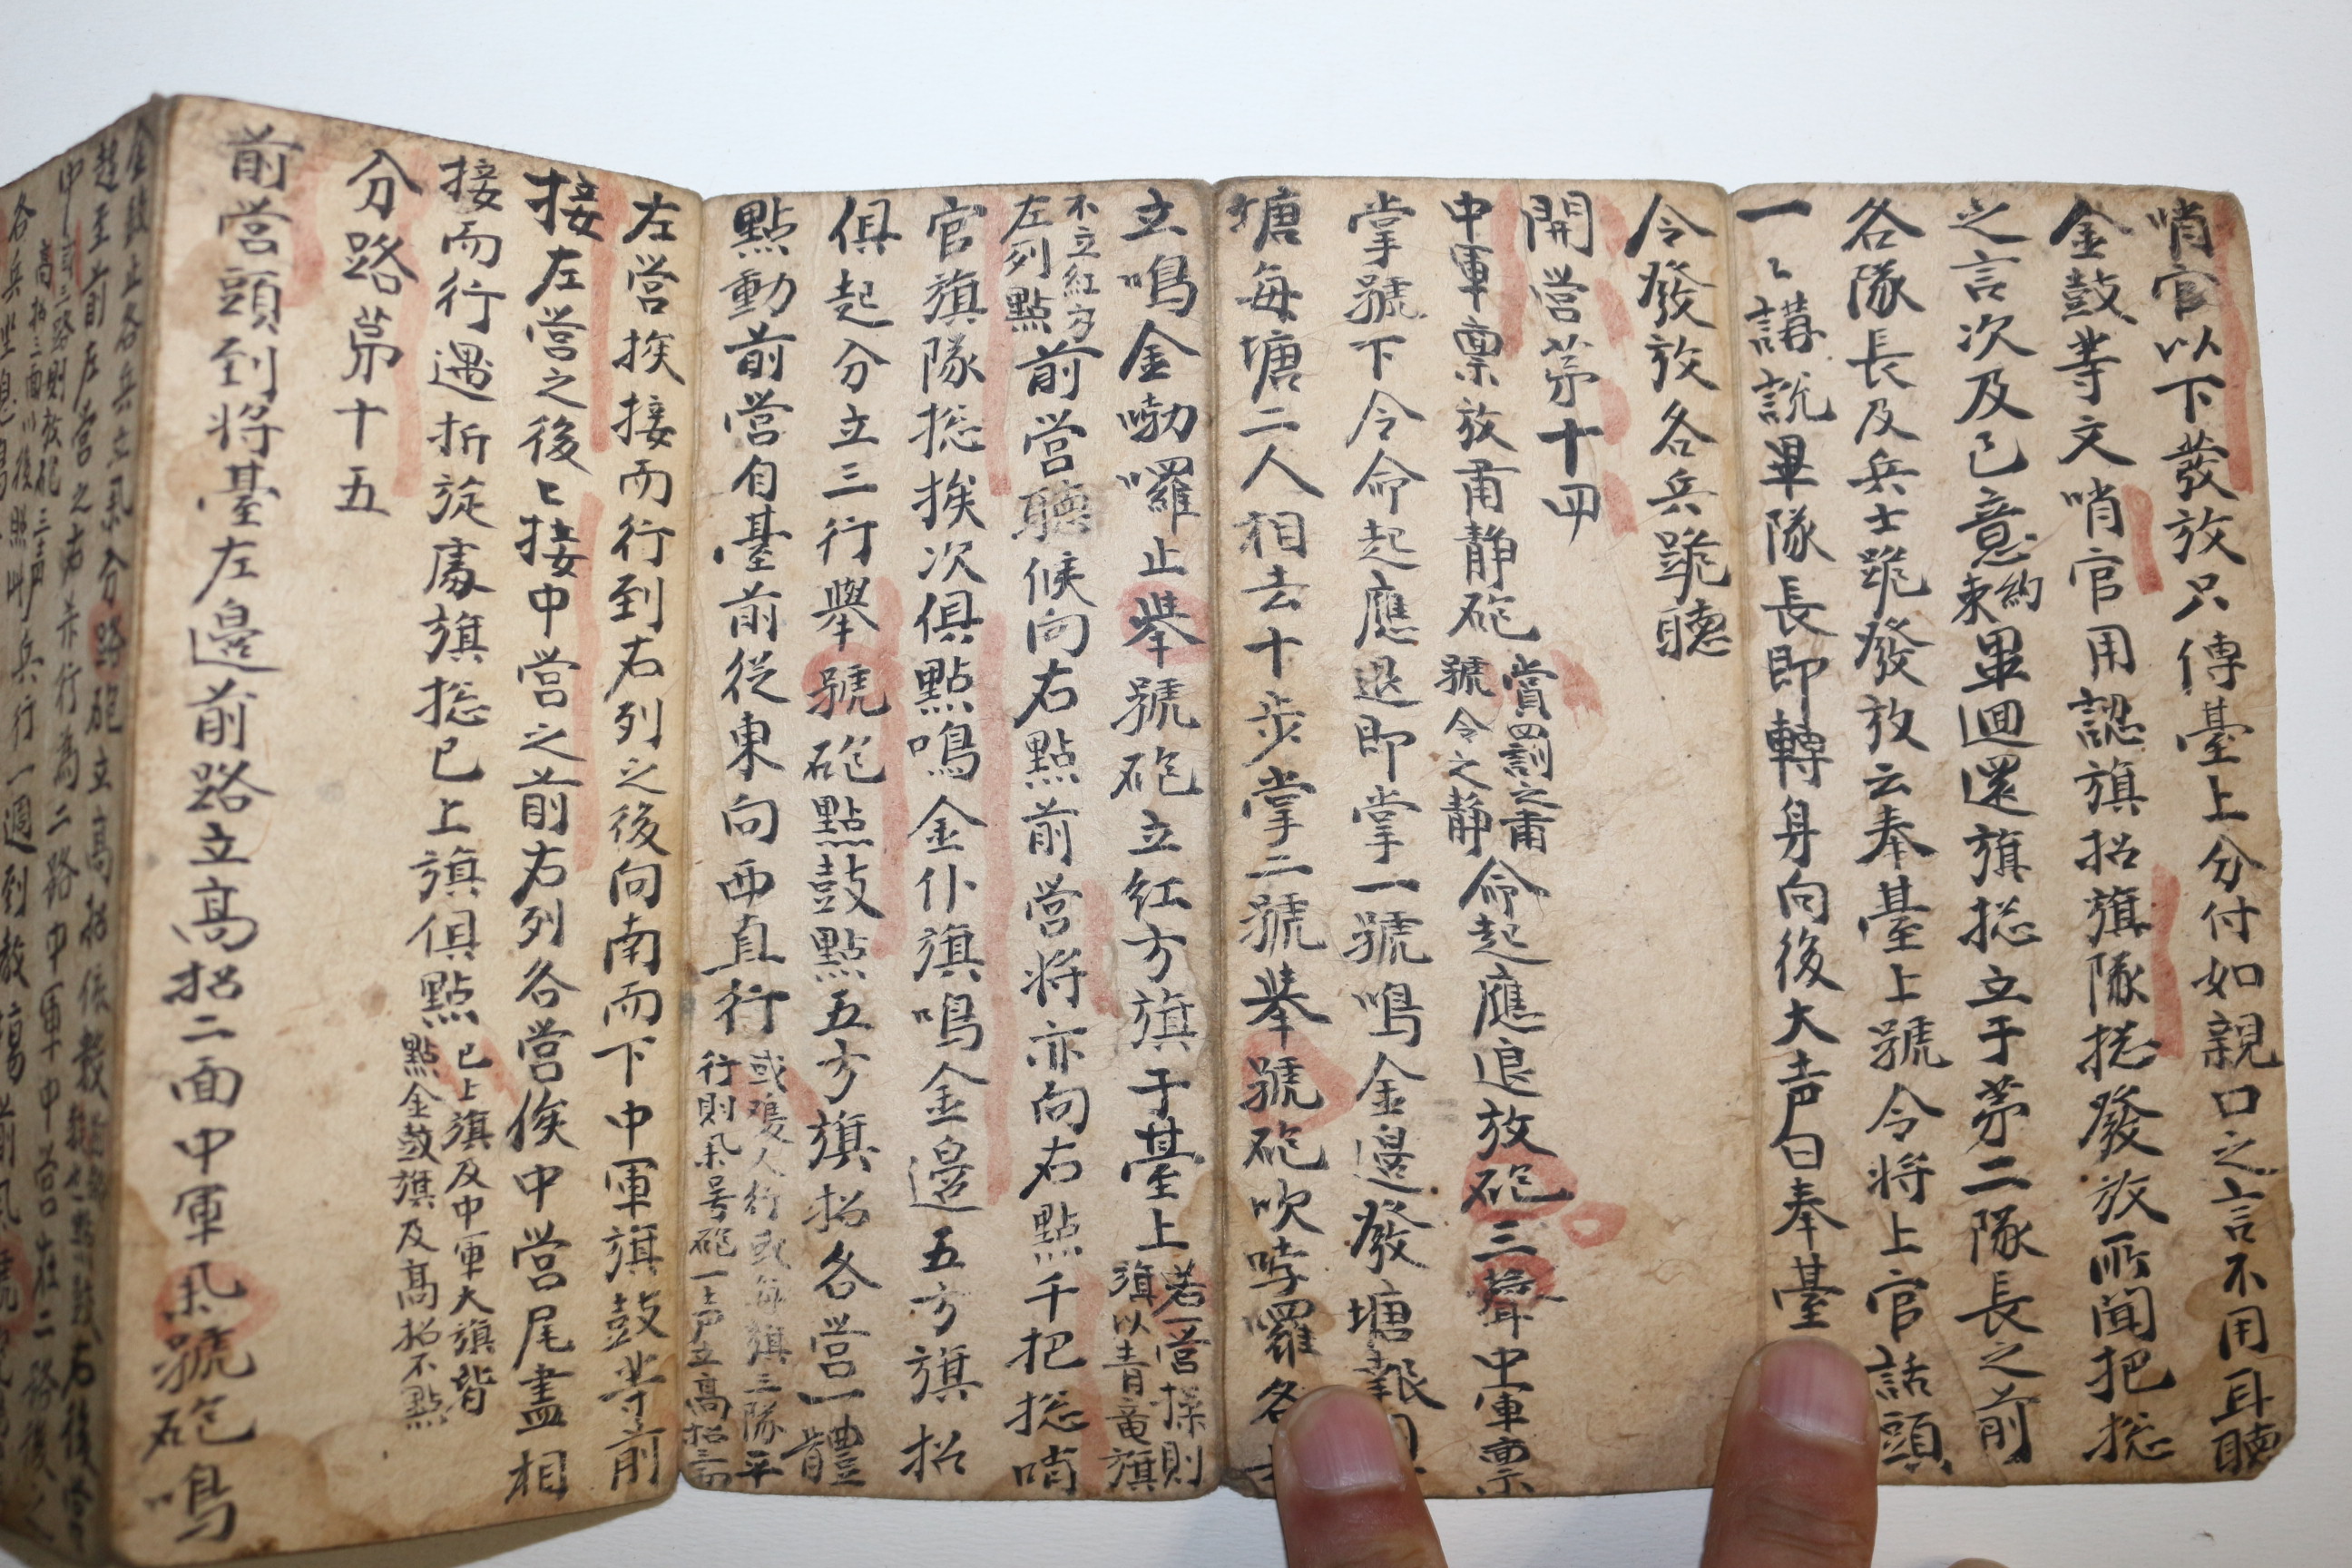 哨官以下發放只傳臺上分付如親口之言不用耳聽
金鼓等文哨官用認旗招旗隊摠發放所聞把摠
之言次及己意約束畢迴還旗摠立于苐二隊長之前
各隊長及兵士跪發放云奉臺上號令将上官話頭
一〻講說畢隊長即轉身向後大声曰奉臺
令發放各兵跪聽
開營苐十四
中軍稟放肅静砲賞罰之肅號令之静命起應退放砲三聲中軍票
掌號下令命起應退即掌一號鳴金邊發塘報
塘每塘二人相去十步掌二號擧號砲吹哱囉各
立鳴金嘞囉止擧號砲立紅方旗于臺上若一營操則旗以青竜旗
不立紅方左列點前營聽候向右點前營将亦向右點千把摠哨
官旗隊摠挨次俱點鳴金仆旗鳴金邊五方旗招
俱起分立三行擧號砲點鼓點五方旗招各營一體
點動前營自臺前從東向西直行或雙人行或每旗三隊平行則吊号砲一声立高招三面
左營挨接而行到右列之後向南而下中軍旗鼓等前
接左營之後〻接中營之前右列各營俟中營尾盡相
接而行遇折旋處旗摠已上旗俱點已上旗及中軍大旗皆點金鼓旗及高招不點
分路苐十五
前營頭到将臺左邊前路立高招二面中軍吊號砲鳴